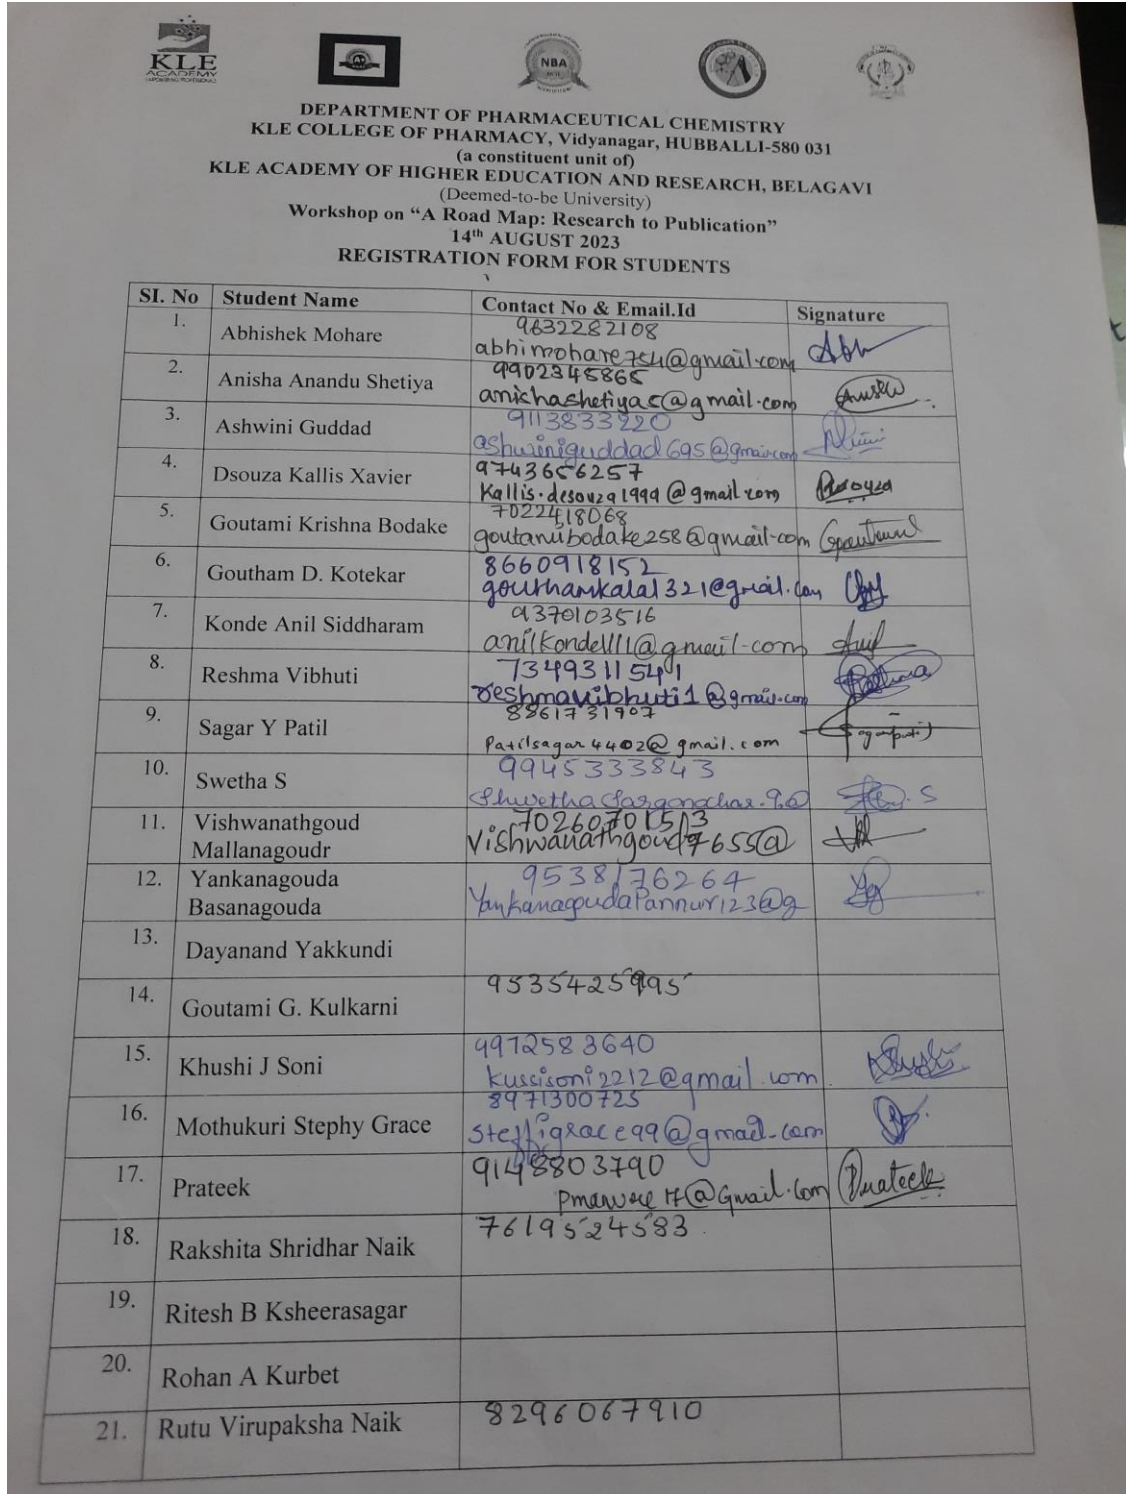 KLE
ACADEMY
NBA
DEPARTMENT OF PHARMACEUTICAL CHEMISTRY
KLE COLLEGE OF PHARMACY, Vidyanagar, HUBBALLI-580 031
(a constituent unit of)
KLE ACADEMY OF HIGHER EDUCATION AND RESEARCH, BELAGAVI
(Deemed-to-be University)
Workshop on “A Road Map: Research to Publication”
14th AUGUST 2023
REGISTRATION FORM FOR STUDENTS
SI. No Student Name Contact No & Email.Id Signature
1. Abhishek Mohare 9632282108
abhimohare754@gmail.com
2. Anisha Anandu Shetiya 9902345865
anishashetiya5@gmail.com
3. Ashwini Guddad 9113833220
ashwiniguddad695@gmail.com
4. Dsouza Kallis Xavier 9743656257
Kallis.desouza1999@gmail.com Dsouza
5. Goutami Krishna Bodake 7022418068
goutamibodake258@gmail.com
6. Goutham D. Kotekar 8660918152
gouthamkalal321@gmail.com
7. Konde Anil Siddharam 9370103516
anilkonde1111@gmail.com
8. Reshma Vibhuti 7349311541
reshmavibhuti1@gmail.com
9. Sagar Y Patil 8861731907
Patilsagar4402@gmail.com
10. Swetha S 9945333843
11. Vishwanathgoud
Mallanagoudr 7026070153
Vishwanathgoud7655@
12. Yankanagouda
Basanagouda 9538176264
YankanagoudaPannur123@g
13. Dayanand Yakkundi
14. Goutami G. Kulkarni 9535425995
15. Khushi J Soni 9972583640
kussisoni2212@gmail.com
16. Mothukuri Stephy Grace 8971300725
steffigrace99@gmail.com
17. Prateek 9148803790
@Gmail.com Prateek
18. Rakshita Shridhar Naik 7619524583
19. Ritesh B Ksheerasagar
20. Rohan A Kurbet
21. Rutu Virupaksha Naik 8296067910